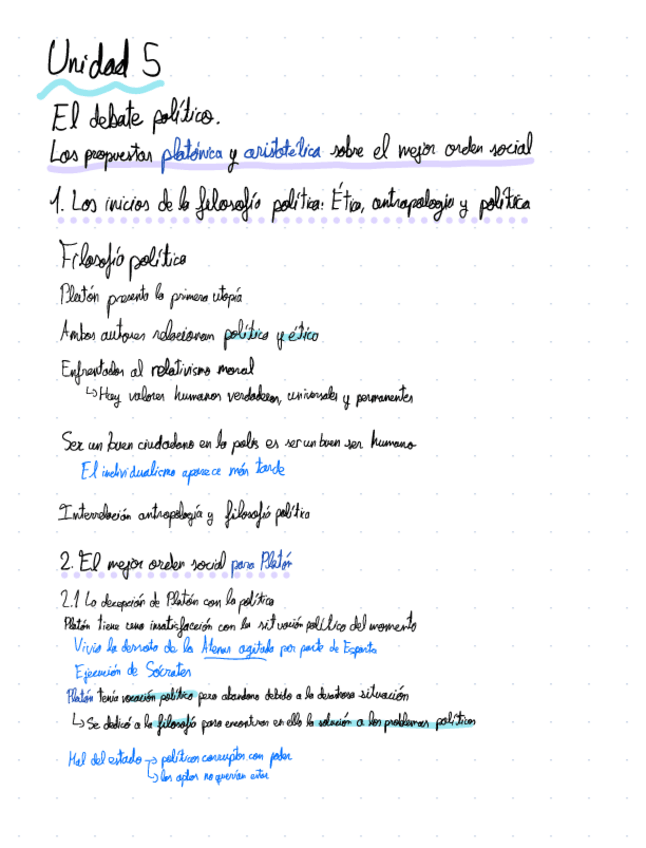 Unidad 5
El debate político.
Las propuestas platónica y aristotélica sobre el mejor orden social
1. Los inicios de la filosofía política: Ética, antropología y política
Filosofía política
Platón presenta la primera utopía
Ambos autores relacionan política y ética
Enfrentados al relativismo moral
↳ Hay valores humanos verdaderos, universales y permanentes
Ser un buen ciudadano en la polis es ser un buen ser humano
El individualismo aparece más tarde
Interrelación antropología y filosofía política
2. El mejor orden social para Platón
2.1 La decepción de Platón con la política
Platón tiene una insatisfacción con la situación política del momento
Vivió la derrota de la Atenas agitada por parte de Esparta
Ejecución de Sócrates
Platón tenía vocación política pero abandona debido a la desastrosa situación
↳ Se dedicó a la filosofía para encontrar en ella la solución a los problemas políticos
Mal del estado → políticos corruptos con poder
↳ los aptos no querían estar